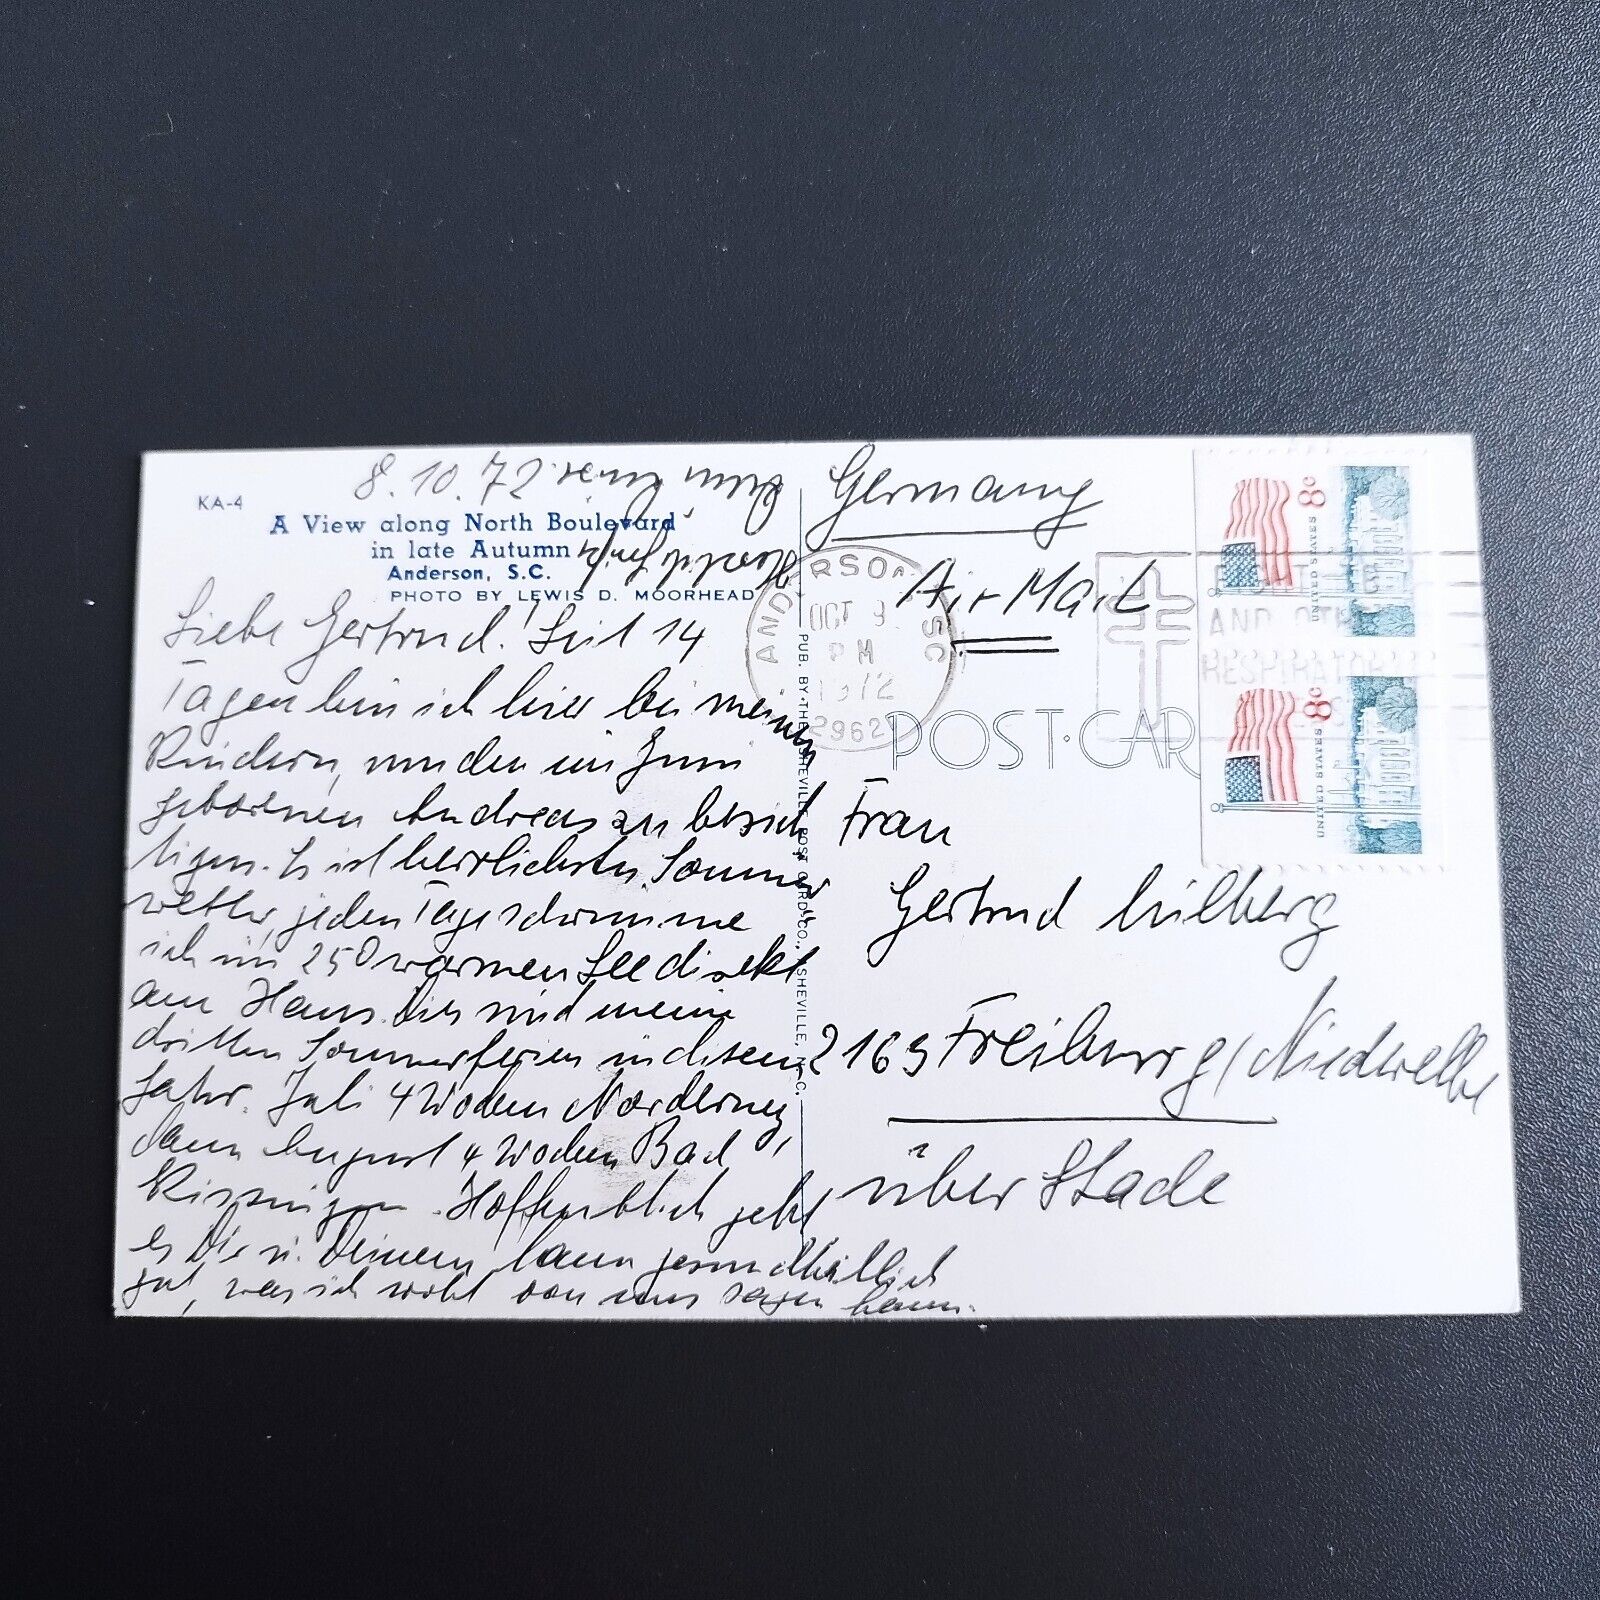 8.10.72
KA-4
A View along North Boulevard
in late Autumn
Anderson, S.C.
PHOTO BY LEWIS D. MOORHEAD
Liebe Gertrud! Seit 14
Tagen bin ich hier bei meinen
Kindern, um den im Juni
geborenen Andreas zu besich
tigen. Es ist herrlichstes Sommer
wetter, jeden Tag schwimme
ich im 25° warmen See direkt
am Haus. Dies sind meine
dritten Sommerferien in diesem
Jahr. Juli 4 Wochen Norderney,
dann August 4 Wochen Bad
Kissingen. Hoffentlich geht
es Dir u. Deinem Mann gesundheitlich
gut, was ich wohl von uns sagen kann.
Herzlich
PUB. BY THE ASHEVILLE POST CARD CO., ASHEVILLE, N.C.
Germany
Air Mail
ANDERSON SC
OCT 9
PM
1972
29621
POST CAR
AND OTHER
RESPIRATORY
8c
UNITED STATES
8c
UNITED STATES
Frau
Gertrud
2163 Freiburg/Niederelbe
über Stade